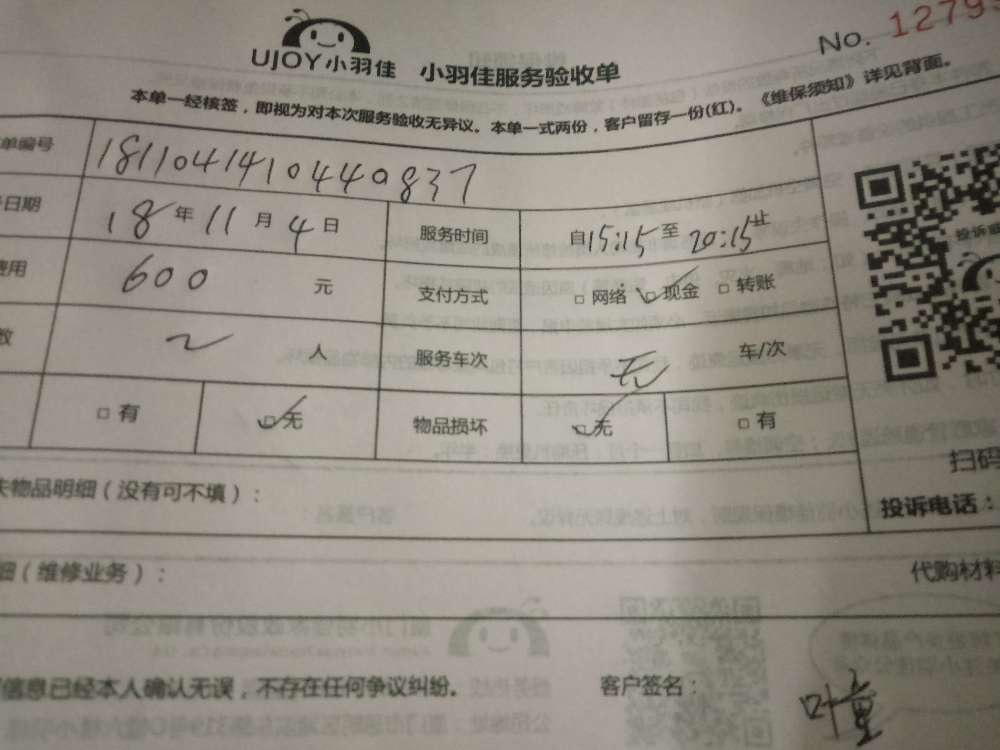 UJOY小羽佳 小羽佳服务验收单 No. 1279
本单一经核签，即视为对本次服务验收无异议。本单一式两份，客户留存一份(红)。《维保须知》详见背面。
单编号 1811041410440837
日期 18年11月4日 服务时间 自15:15至20:15止
费用 600元 支付方式 □网络 ☑现金 □转账
数 2人 服务车次 无 车/次
□有 ☑无 物品损坏 ☑无 □有
投诉
扫码
失物品明细（没有可不填）： 投诉电话：
细（维修业务）： 代购材料
信息已经本人确认无误，不存在任何争议纠纷。 客户签名： 叶童